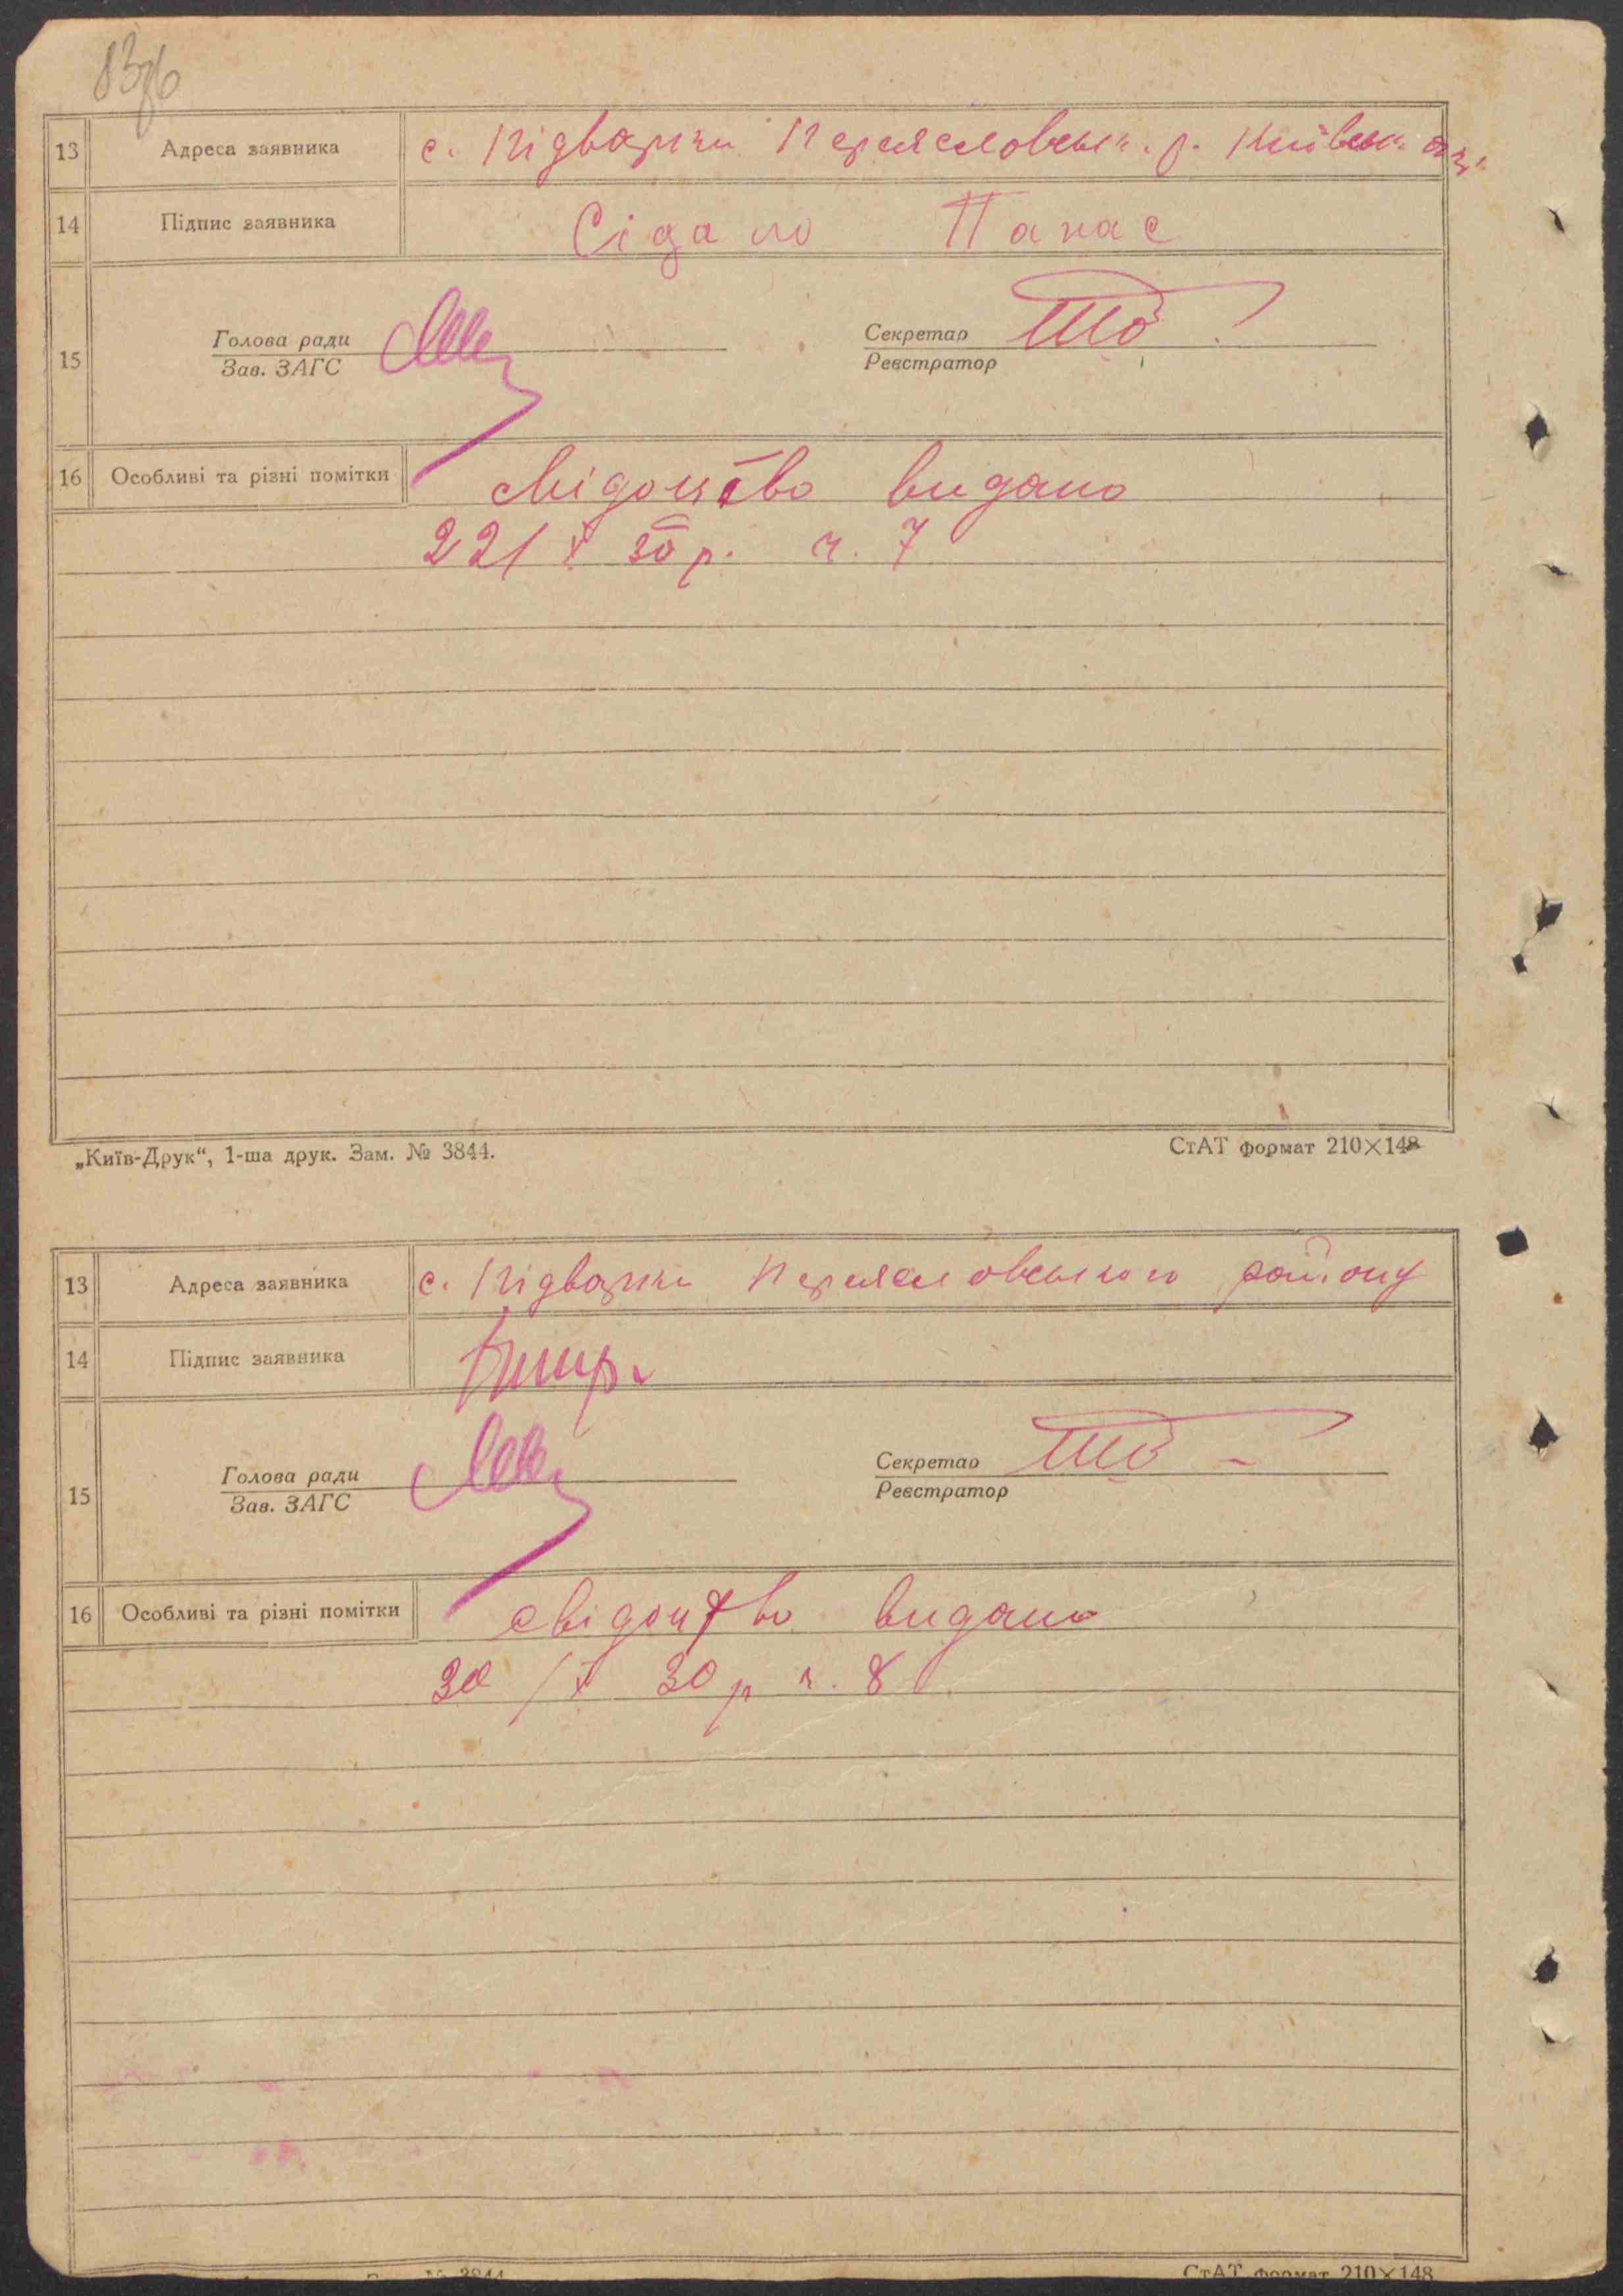 13 Адреса заявника с. Підварки Переясловськ. р. Київськ
14 Підпис заявника Сідало Панас
Голова ради Секретар
15
Зав. ЗАГС Реєстратор
16 Особливі та різні помітки свідоцтво видано
22/X 30 р. ч. 7
„Київ-Друк“, 1-ша друк. Зам. № 3844. СтАТ формат 210×148
13 Адреса заявника с. Підварки Переясловського району
14 Підпис заявника
Голова ради Секретар
15
Зав. ЗАГС Реєстратор
16 Особливі та різні помітки свідоцтво видано
30/X 30 р ч. 8
№ 3844 СтАТ формат 210×148